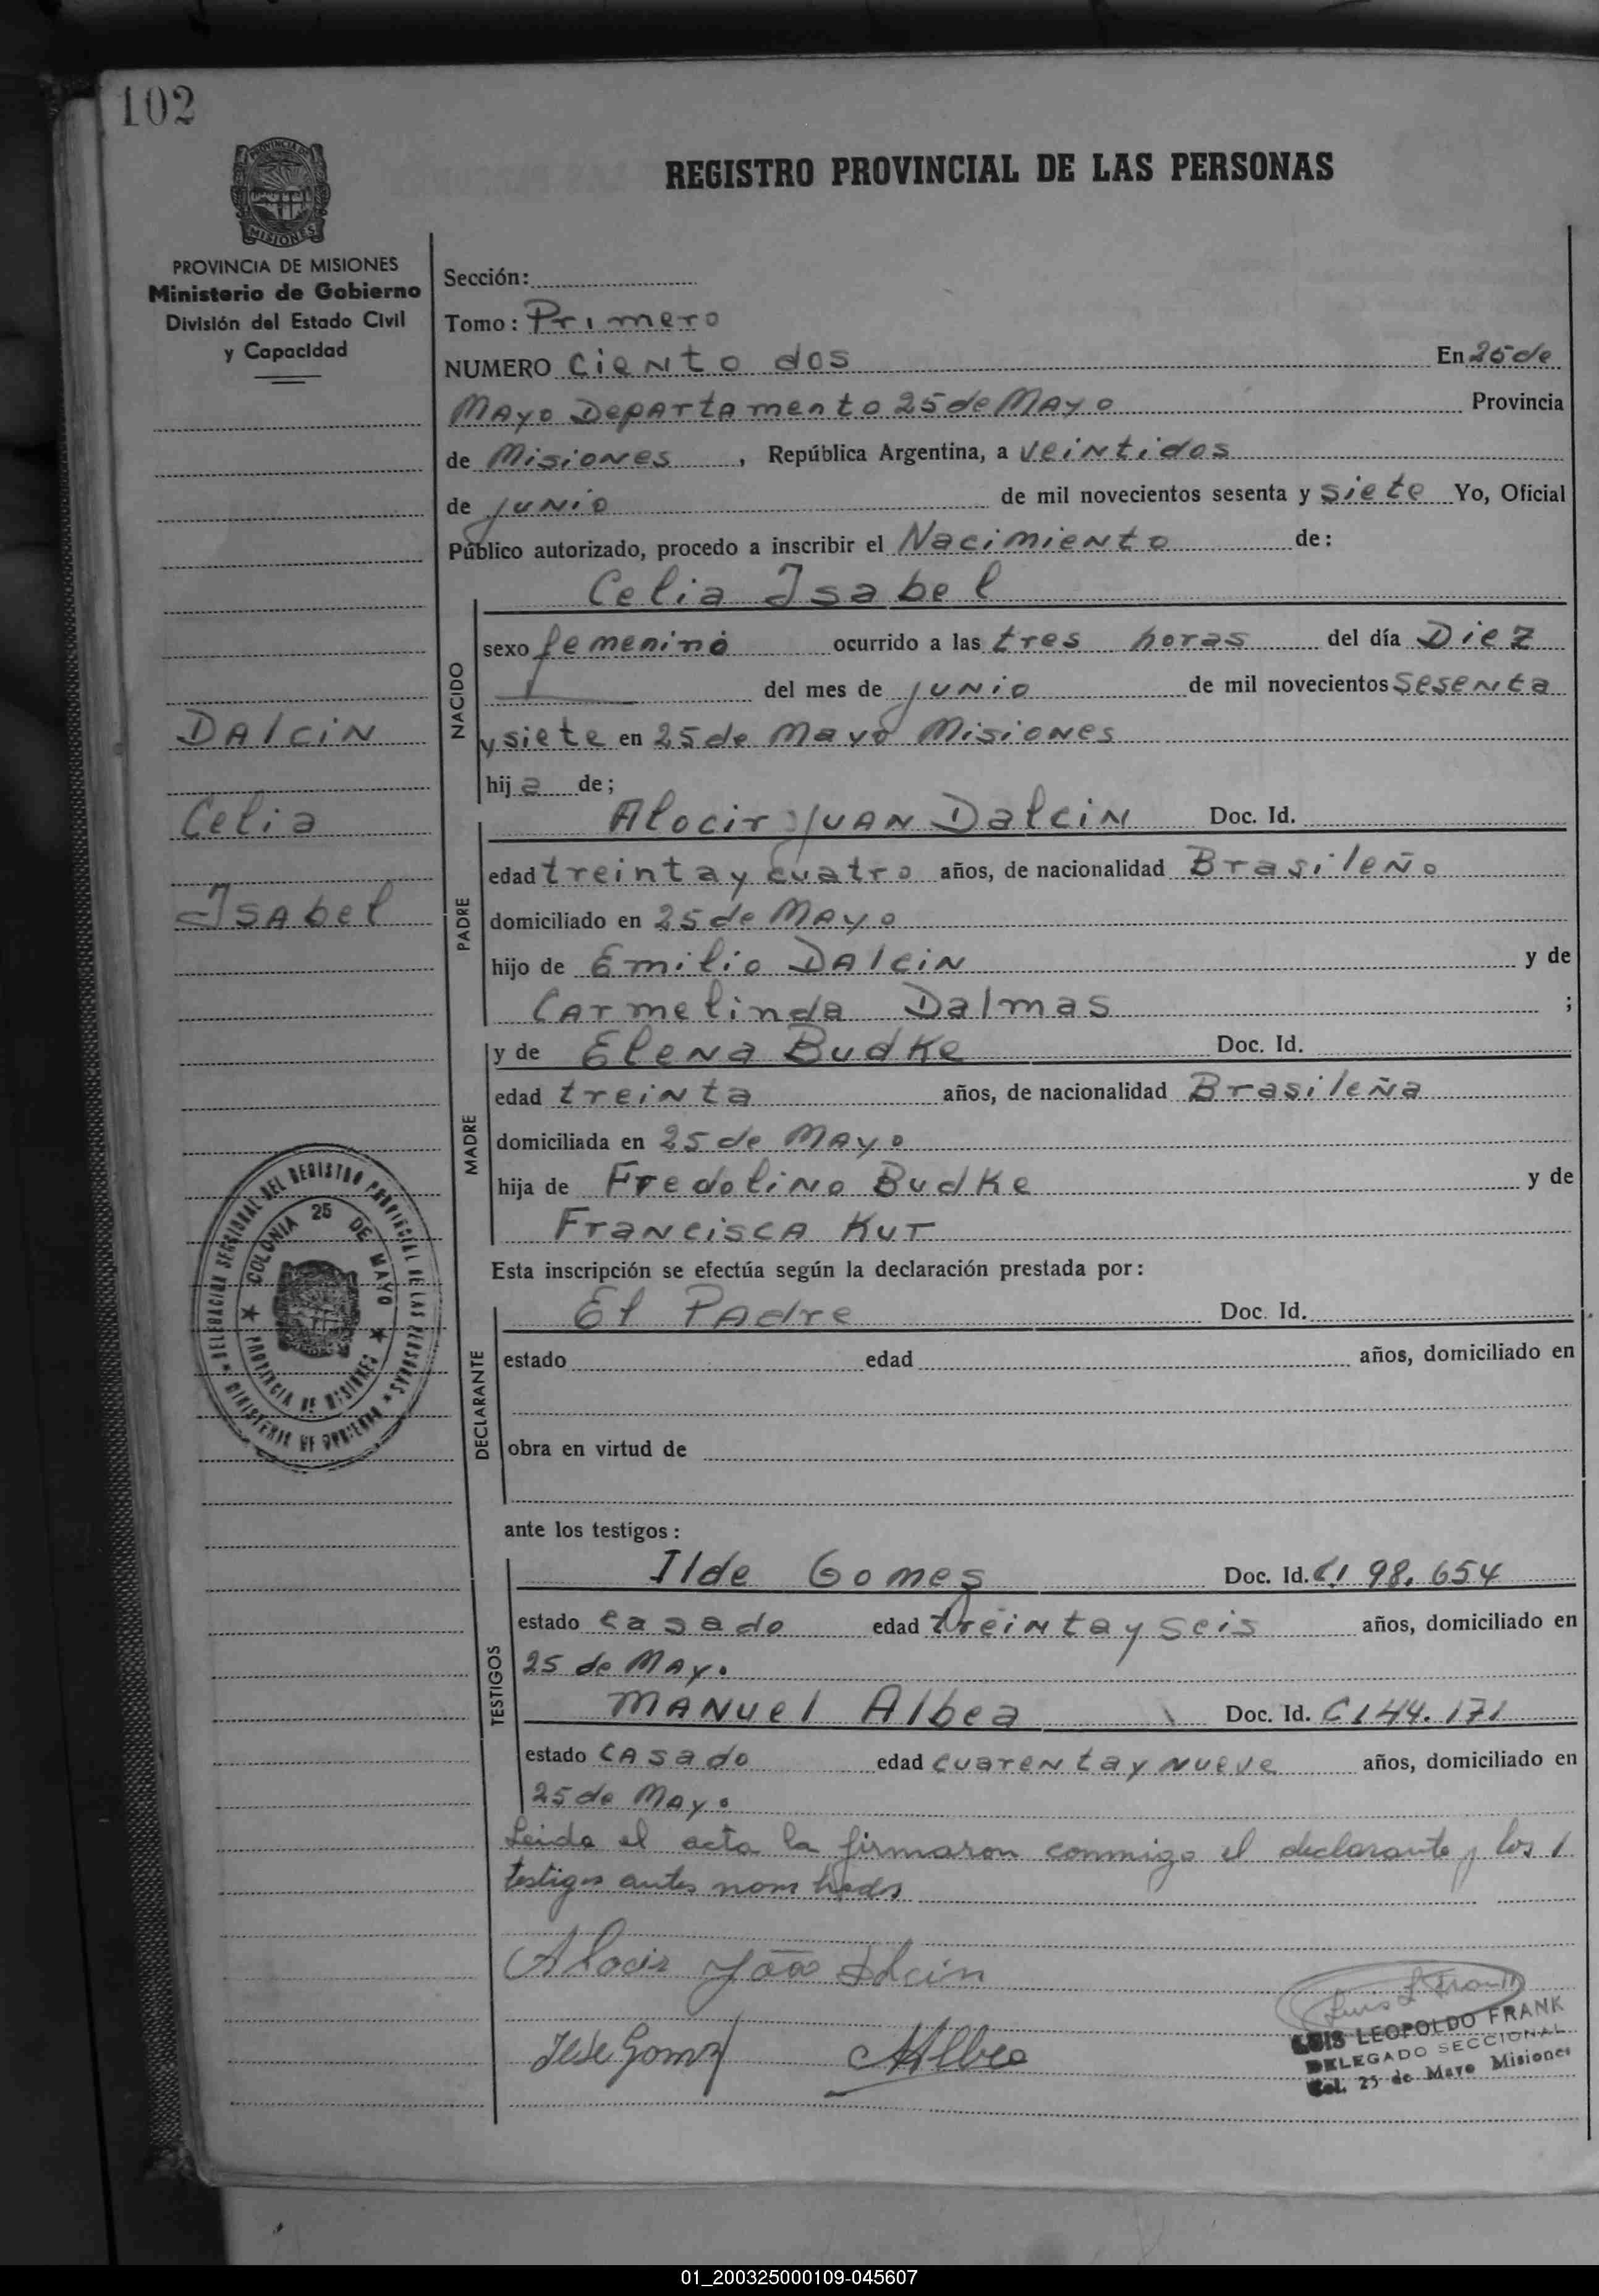 102
PROVINCIA DE MISIONES
REGISTRO PROVINCIAL DE LAS PERSONAS
PROVINCIA DE MISIONES
Ministerio de Gobierno
División del Estado Civil
y Capacidad
Sección:
Tomo: Primero
NUMERO Ciento dos En 25 de
Mayo Departamento 25 de Mayo Provincia
de Misiones, República Argentina, a veintidos
de junio de mil novecientos sesenta y siete Yo, Oficial
Público autorizado, procedo a inscribir el Nacimiento de:
Celia Isabel
NACIDO
sexo femenino ocurrido a las tres horas del día Diez
del mes de junio de mil novecientos sesenta
y siete en 25 de Mayo Misiones
hija de;
Dalcin
Celia
Isabel
PADRE
Alocir Juan Dalcin Doc. Id.
edad treinta y cuatro años, de nacionalidad Brasileño
domiciliado en 25 de Mayo
hijo de Emilio Dalcin y de
Carmelinda Dalmas ;
MADRE
y de Elena Budke Doc. Id.
edad treinta años, de nacionalidad Brasileña
domiciliada en 25 de Mayo
hija de Fredolino Budke y de
Francisca Kut
DELEGACION SECCIONAL DEL REGISTRO PROVINCIAL DE LAS PERSONAS
MINISTERIO DE GOBIERNO
COLONIA 25 DE MAYO
PROVINCIA DE MISIONES
Esta inscripción se efectúa según la declaración prestada por:
DECLARANTE
El Padre Doc. Id.
estado edad años, domiciliado en
obra en virtud de
ante los testigos:
TESTIGOS
Ilde Gomes Doc. Id. C.I 98.654
estado casado edad treinta y seis años, domiciliado en
25 de Mayo
Manuel Albea Doc. Id. C I 44.171
estado casado edad cuarenta y nueve años, domiciliado en
25 de Mayo
Leida el acta la firmaron conmigo el declarante y los
testigos antes
Alocir João Dalcin
Ilde Gomes
MAlbea
Luis L Frank
LUIS LEOPOLDO FRANK
DELEGADO SECCIONAL
Col. 25 de Mayo Misiones
01_200325000109-045607